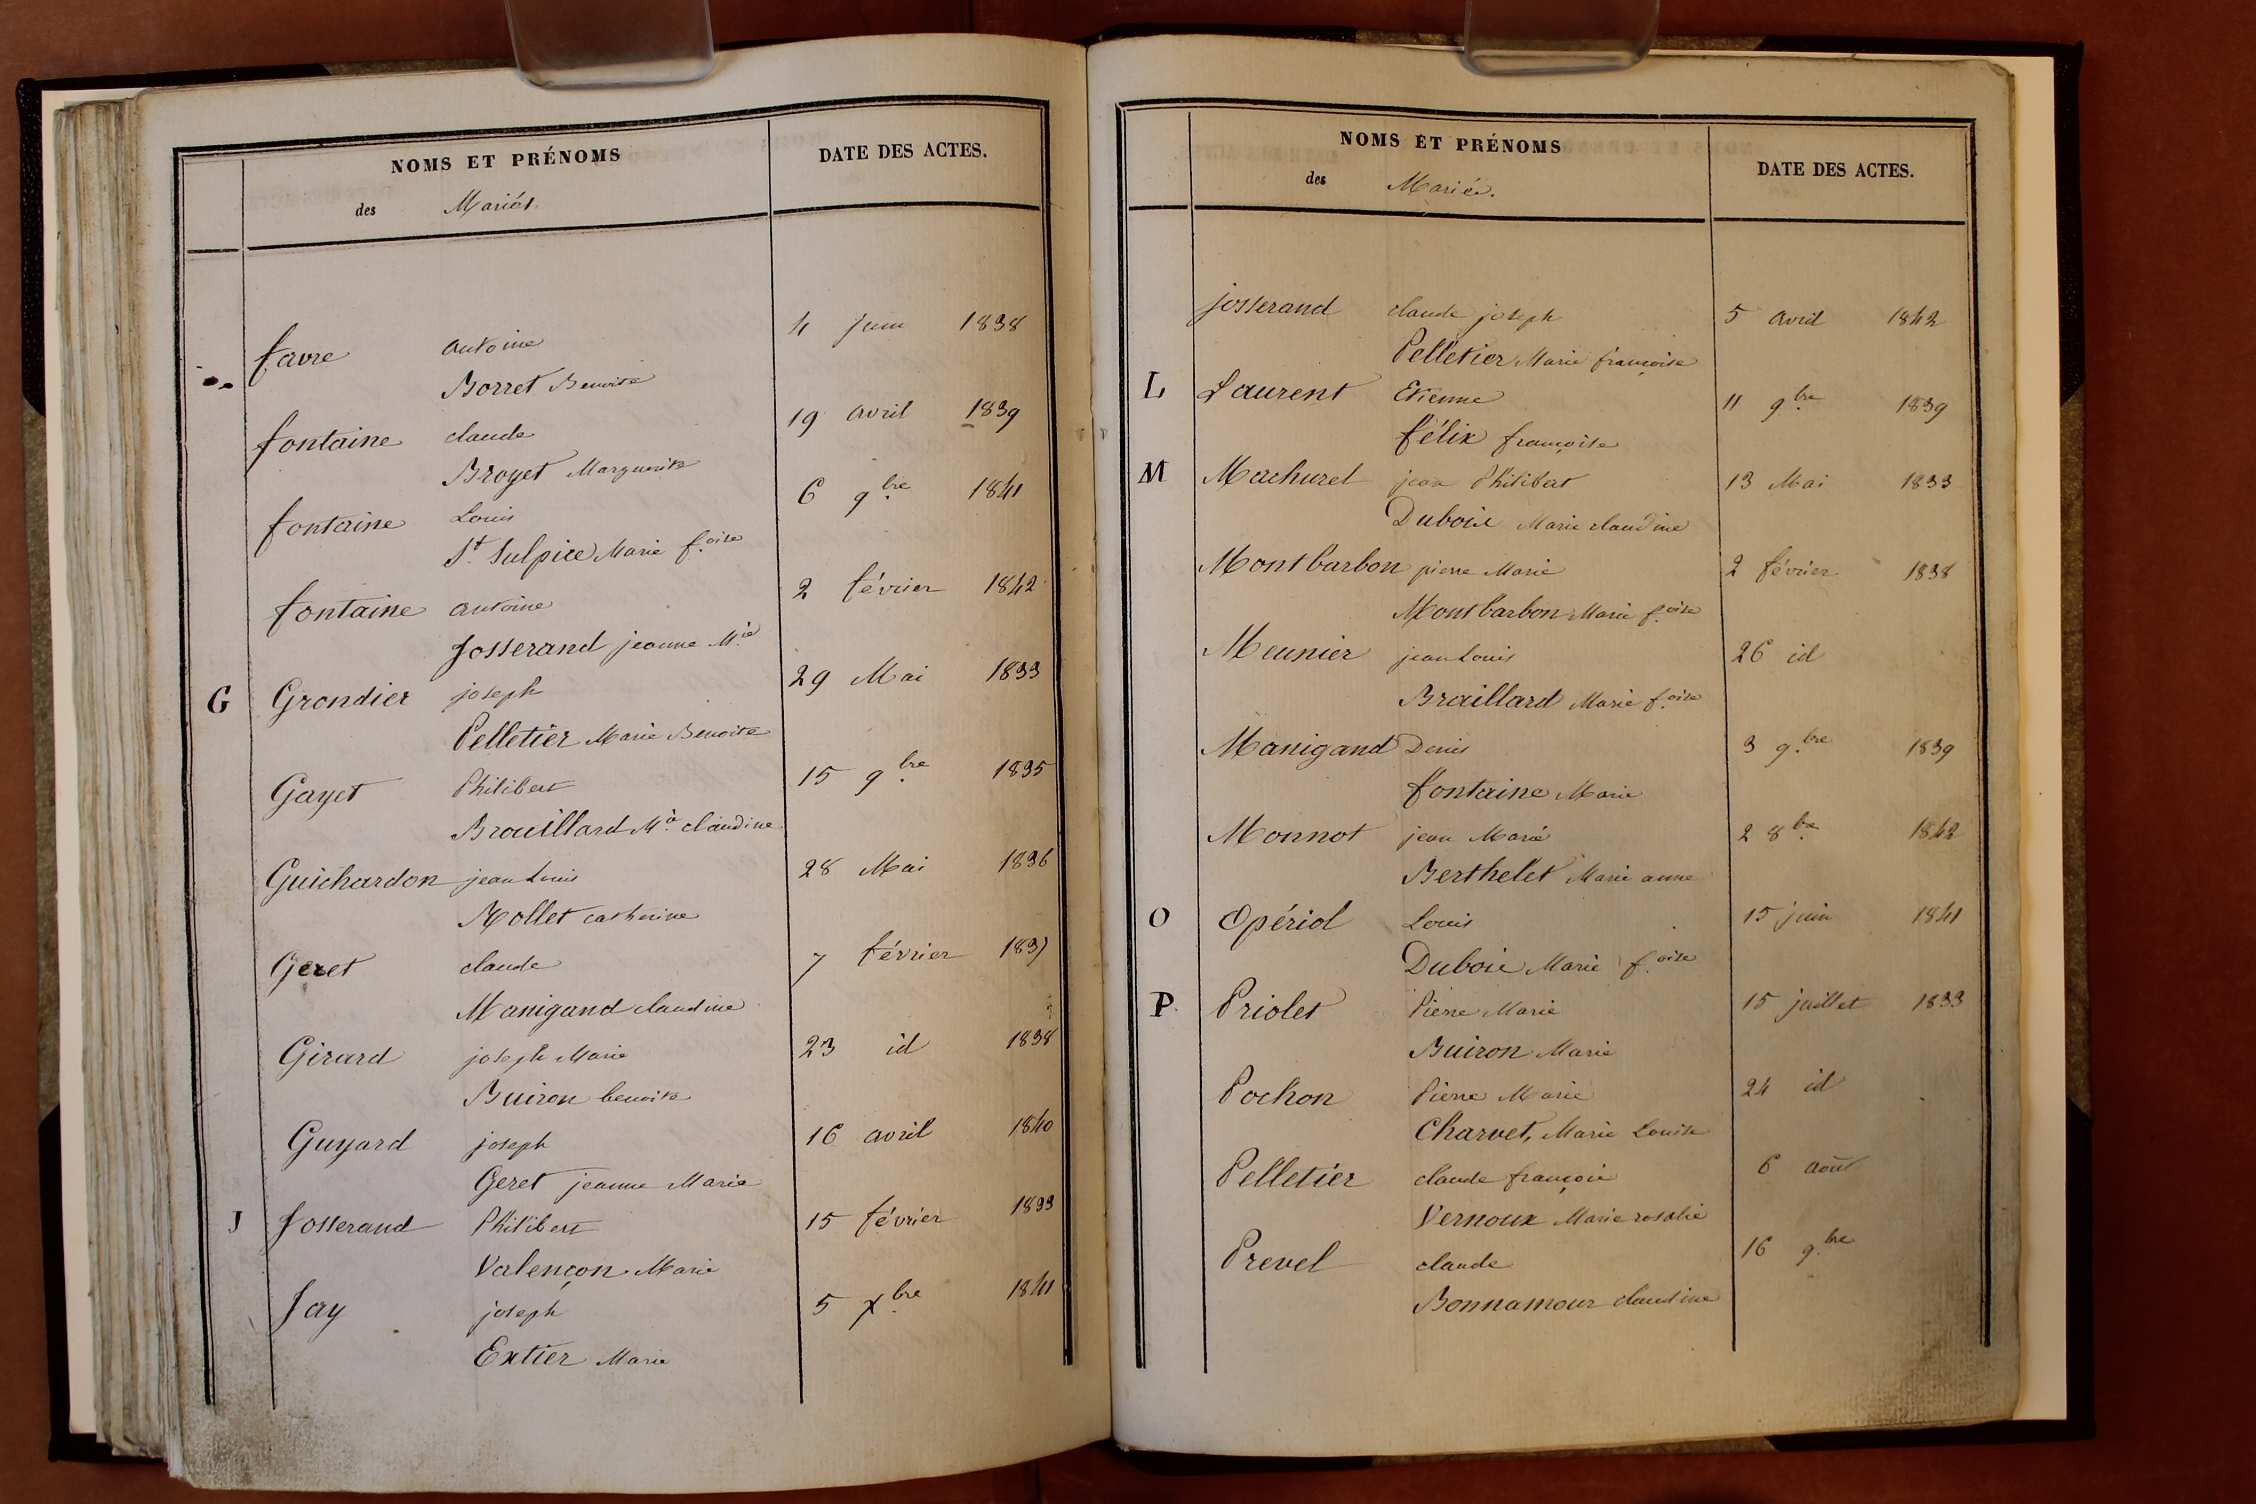 NOMS ET PRÉNOMS
DATE DES ACTES.
des Mariés.
favre antoine 4 Juin 1838
Borret Benoite
fontaine claude 19 avril 1839
Broyet Marguerite
fontaine Louis 6 9bre 1841
St. Sulpice Marie f.oise
fontaine antoine 2 février 1842
Josserand jeanne M.ie
G Grondier joseph 29 Mai 1833
Pelletier Marie Benoite
Gayet Philibert 15 9bre 1835
Brouillard M.ie claudine
Guichardon jean Louis 28 Mai 1836
Mollet catherine
Geret claude 7 février 1837
Manigand claudine
Girard joseph Marie 23 id 1838
Buiron benoite
Guyard joseph 16 avril 1840
Geret jeanne Marie
J Josserand Philibert 15 février 1833
Valençon Marie
Jay joseph 5 Xbre 1841
Extier Marie
NOMS ET PRÉNOMS
DATE DES ACTES.
des Mariés.
josserand claude joseph 5 avril 1842
Pelletier Marie françoise
L Laurent Etienne 11 9bre 1839
félix françoise
M Machuret jean Philibert 13 Mai 1833
Dubois Marie claudine
Montbarbon pierre Marie 2 février 1838
Montbarbon Marie f.oise
Meunier jean Louis 26 id
Braillard Marie f.oise
Manigand Denis 3 9.bre 1839
fontaine Marie
Monnot jean Marie 2 8bre 1842
Berthelet Marie anne
O Opériol Louis 15 juin 1841
Dubois Marie f.oise
P. Priolet Pierre Marie 15 juillet 1833
Buiron Marie
Pochon Pierre Marie 24 id
Charvet, Marie Louise
Pelletier claude françois 6 août
Vernoux Marie rosalie
Prevel claude 16 9.bre
Bonnamour claudine